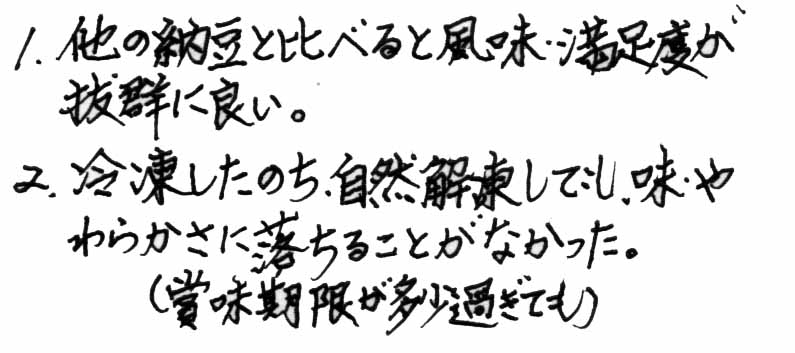 1. 他の納豆と比べると風味・満足度が
抜群に良い。
2. 冷凍したのち、自然解凍しても、味・や
わらかさに落ちることがなかった。
(賞味期限が多少過ぎても)